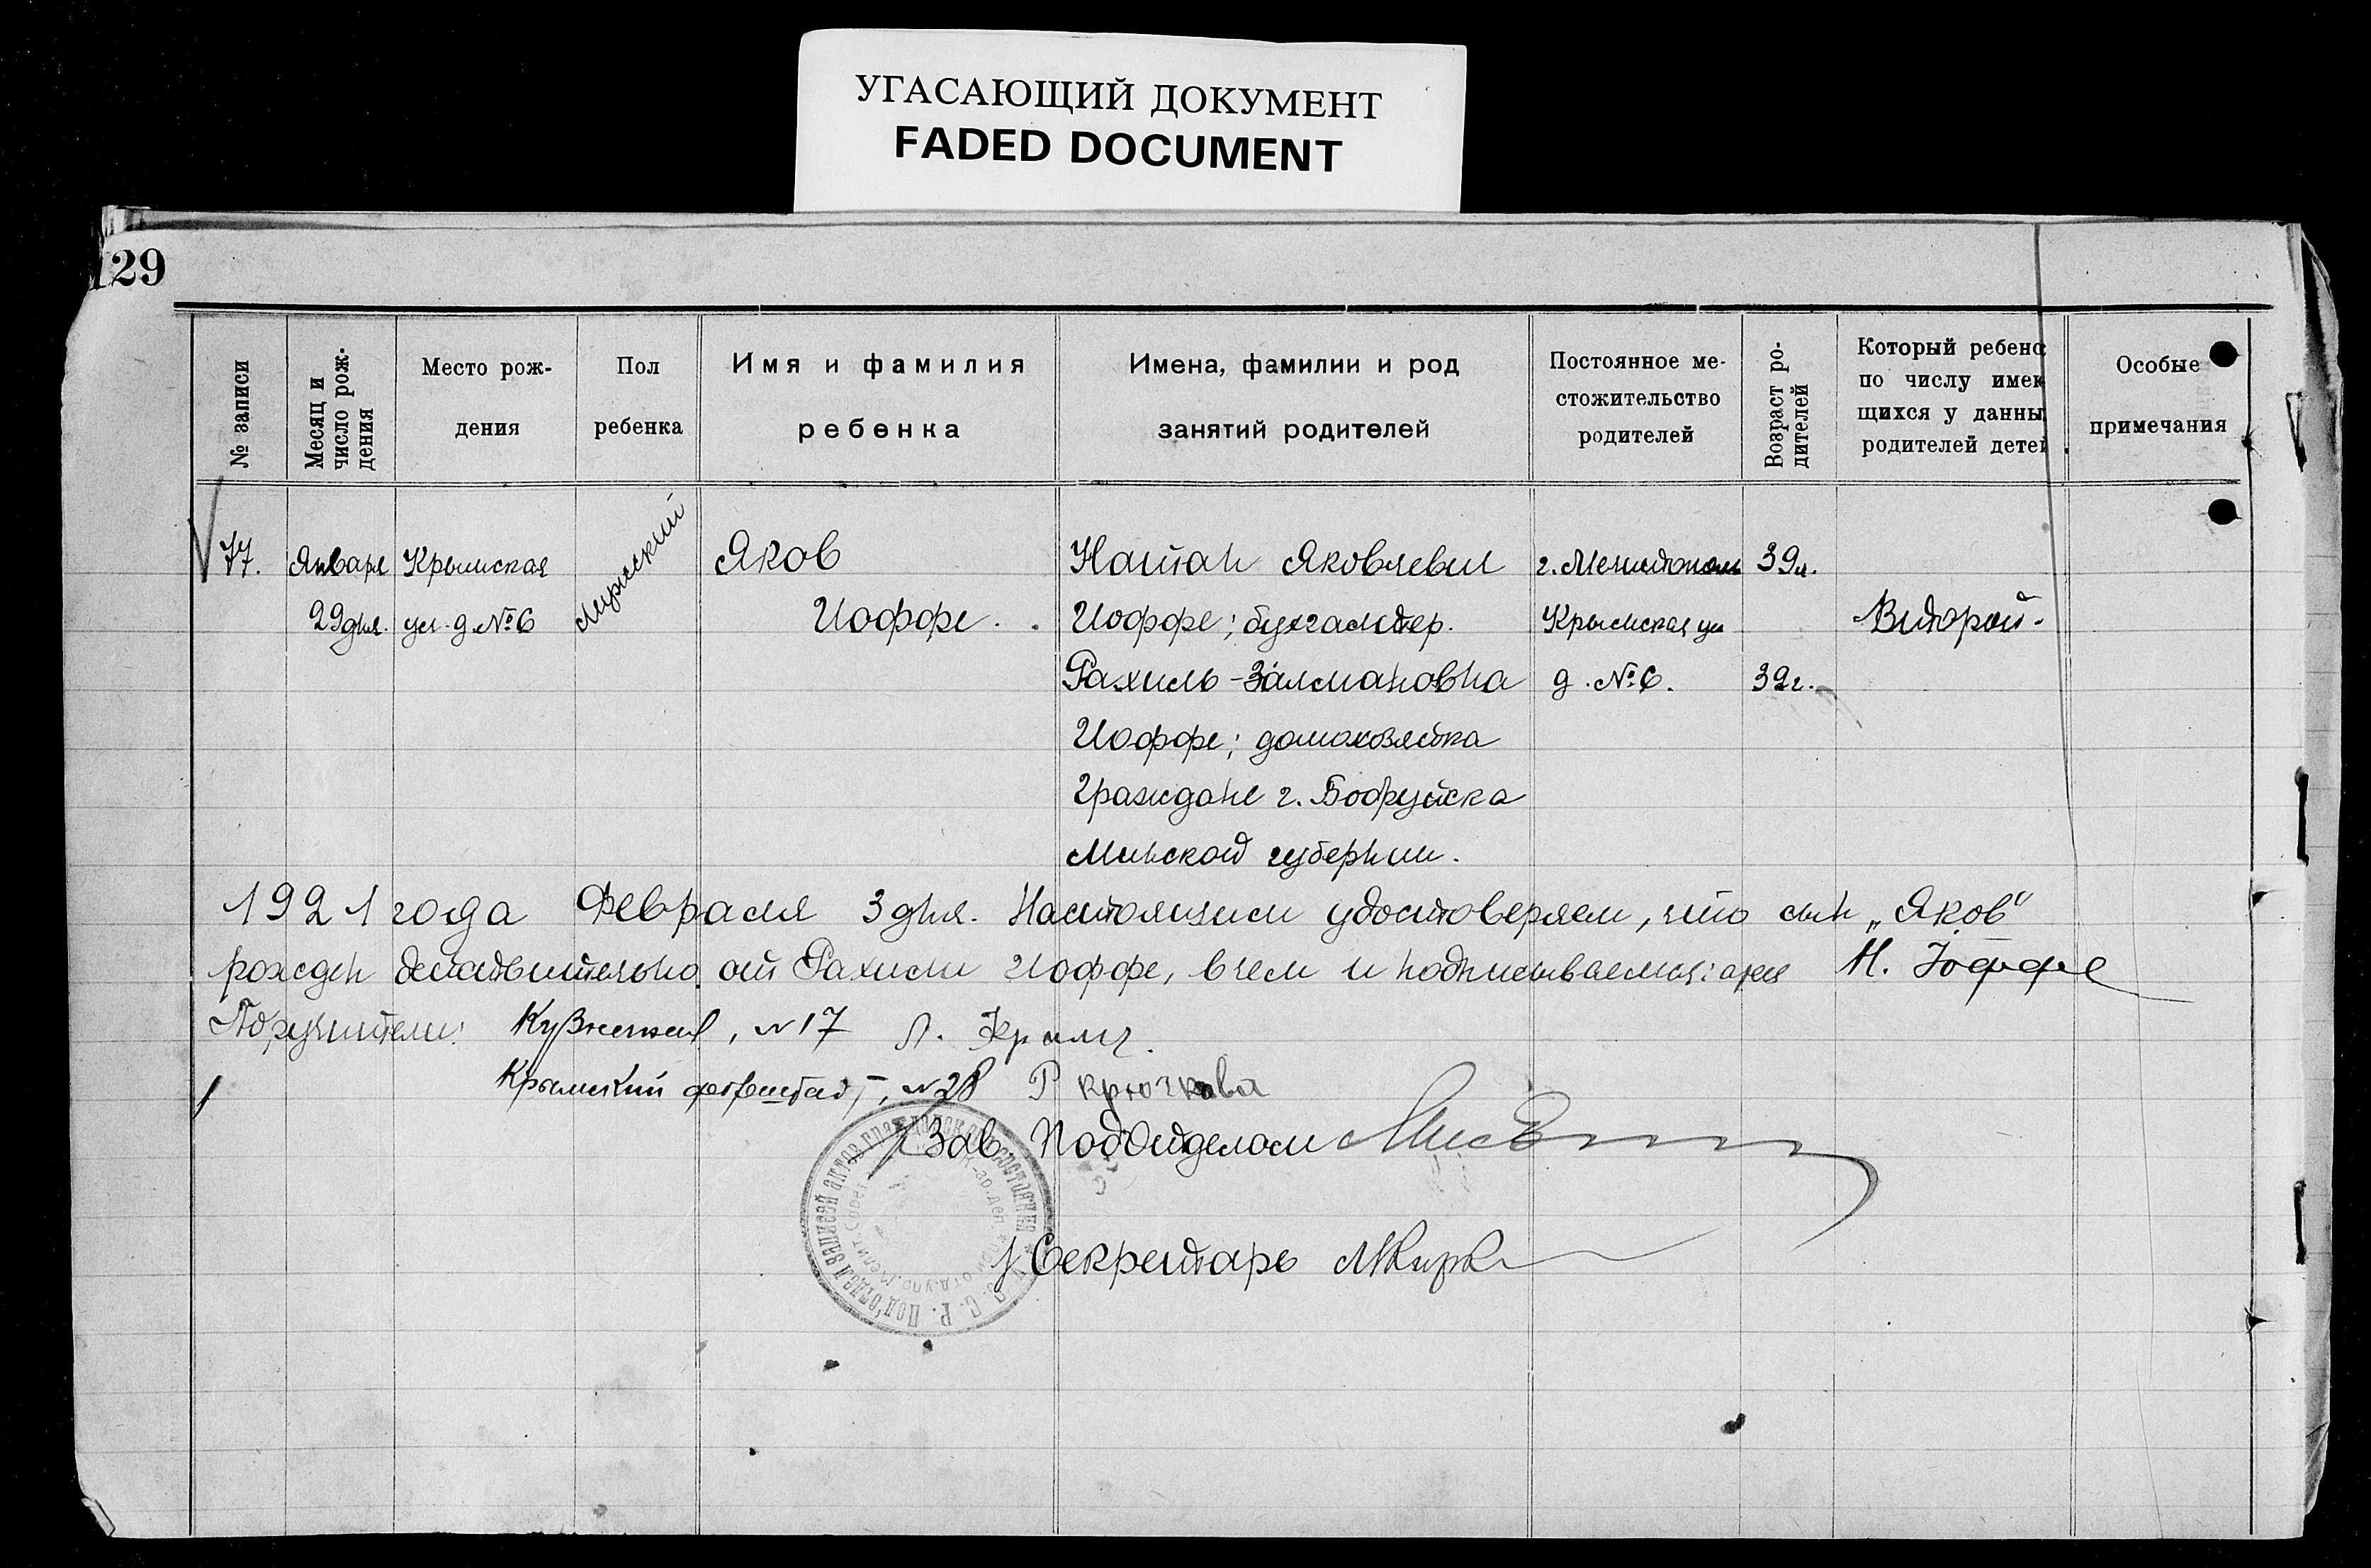 УГАСАЮЩИЙ ДОКУМЕНТ
FADED DOCUMENT
129
№ записи
Месяц и
число рож-
дения
Место рож-
дения
Пол
ребенка
Имя и фамилия
ребенка
Имена, фамилии и род
занятий родителей
Постоянное ме-
стожительство
родителей
Возраст ро-
дителей
Который ребенок
по числу имею-
щихся у данных
родителей детей
Особые
примечания
77.
Января
29 дня.
Крымская
ул. д №6
Мужской
Яков
Иоффе.
Натан Яковлевич
Иоффе; бухгалтер.
Рахиль-Залмановна
Иоффе; домохозяйка
Граждане г. Бобруйска
Минской губернии.
г. Мелитополь
Крымская ул
д. №6.
39л.
32г.
Второй.
1921 года Февраля 3 дня. Настоящим удостоверяем, что сын „Яков“
рожден действительно от Рахили Иоффе, в чем и подписываемся: отец Н. Иоффе
Поручители: Кузнечная, №17
Крымский форштадт, №28 Р Крючкова
Зав. Подотделом
Секретарь
Р. С. Ф. С. Р. Под'отдел записей актов гражданского состояния